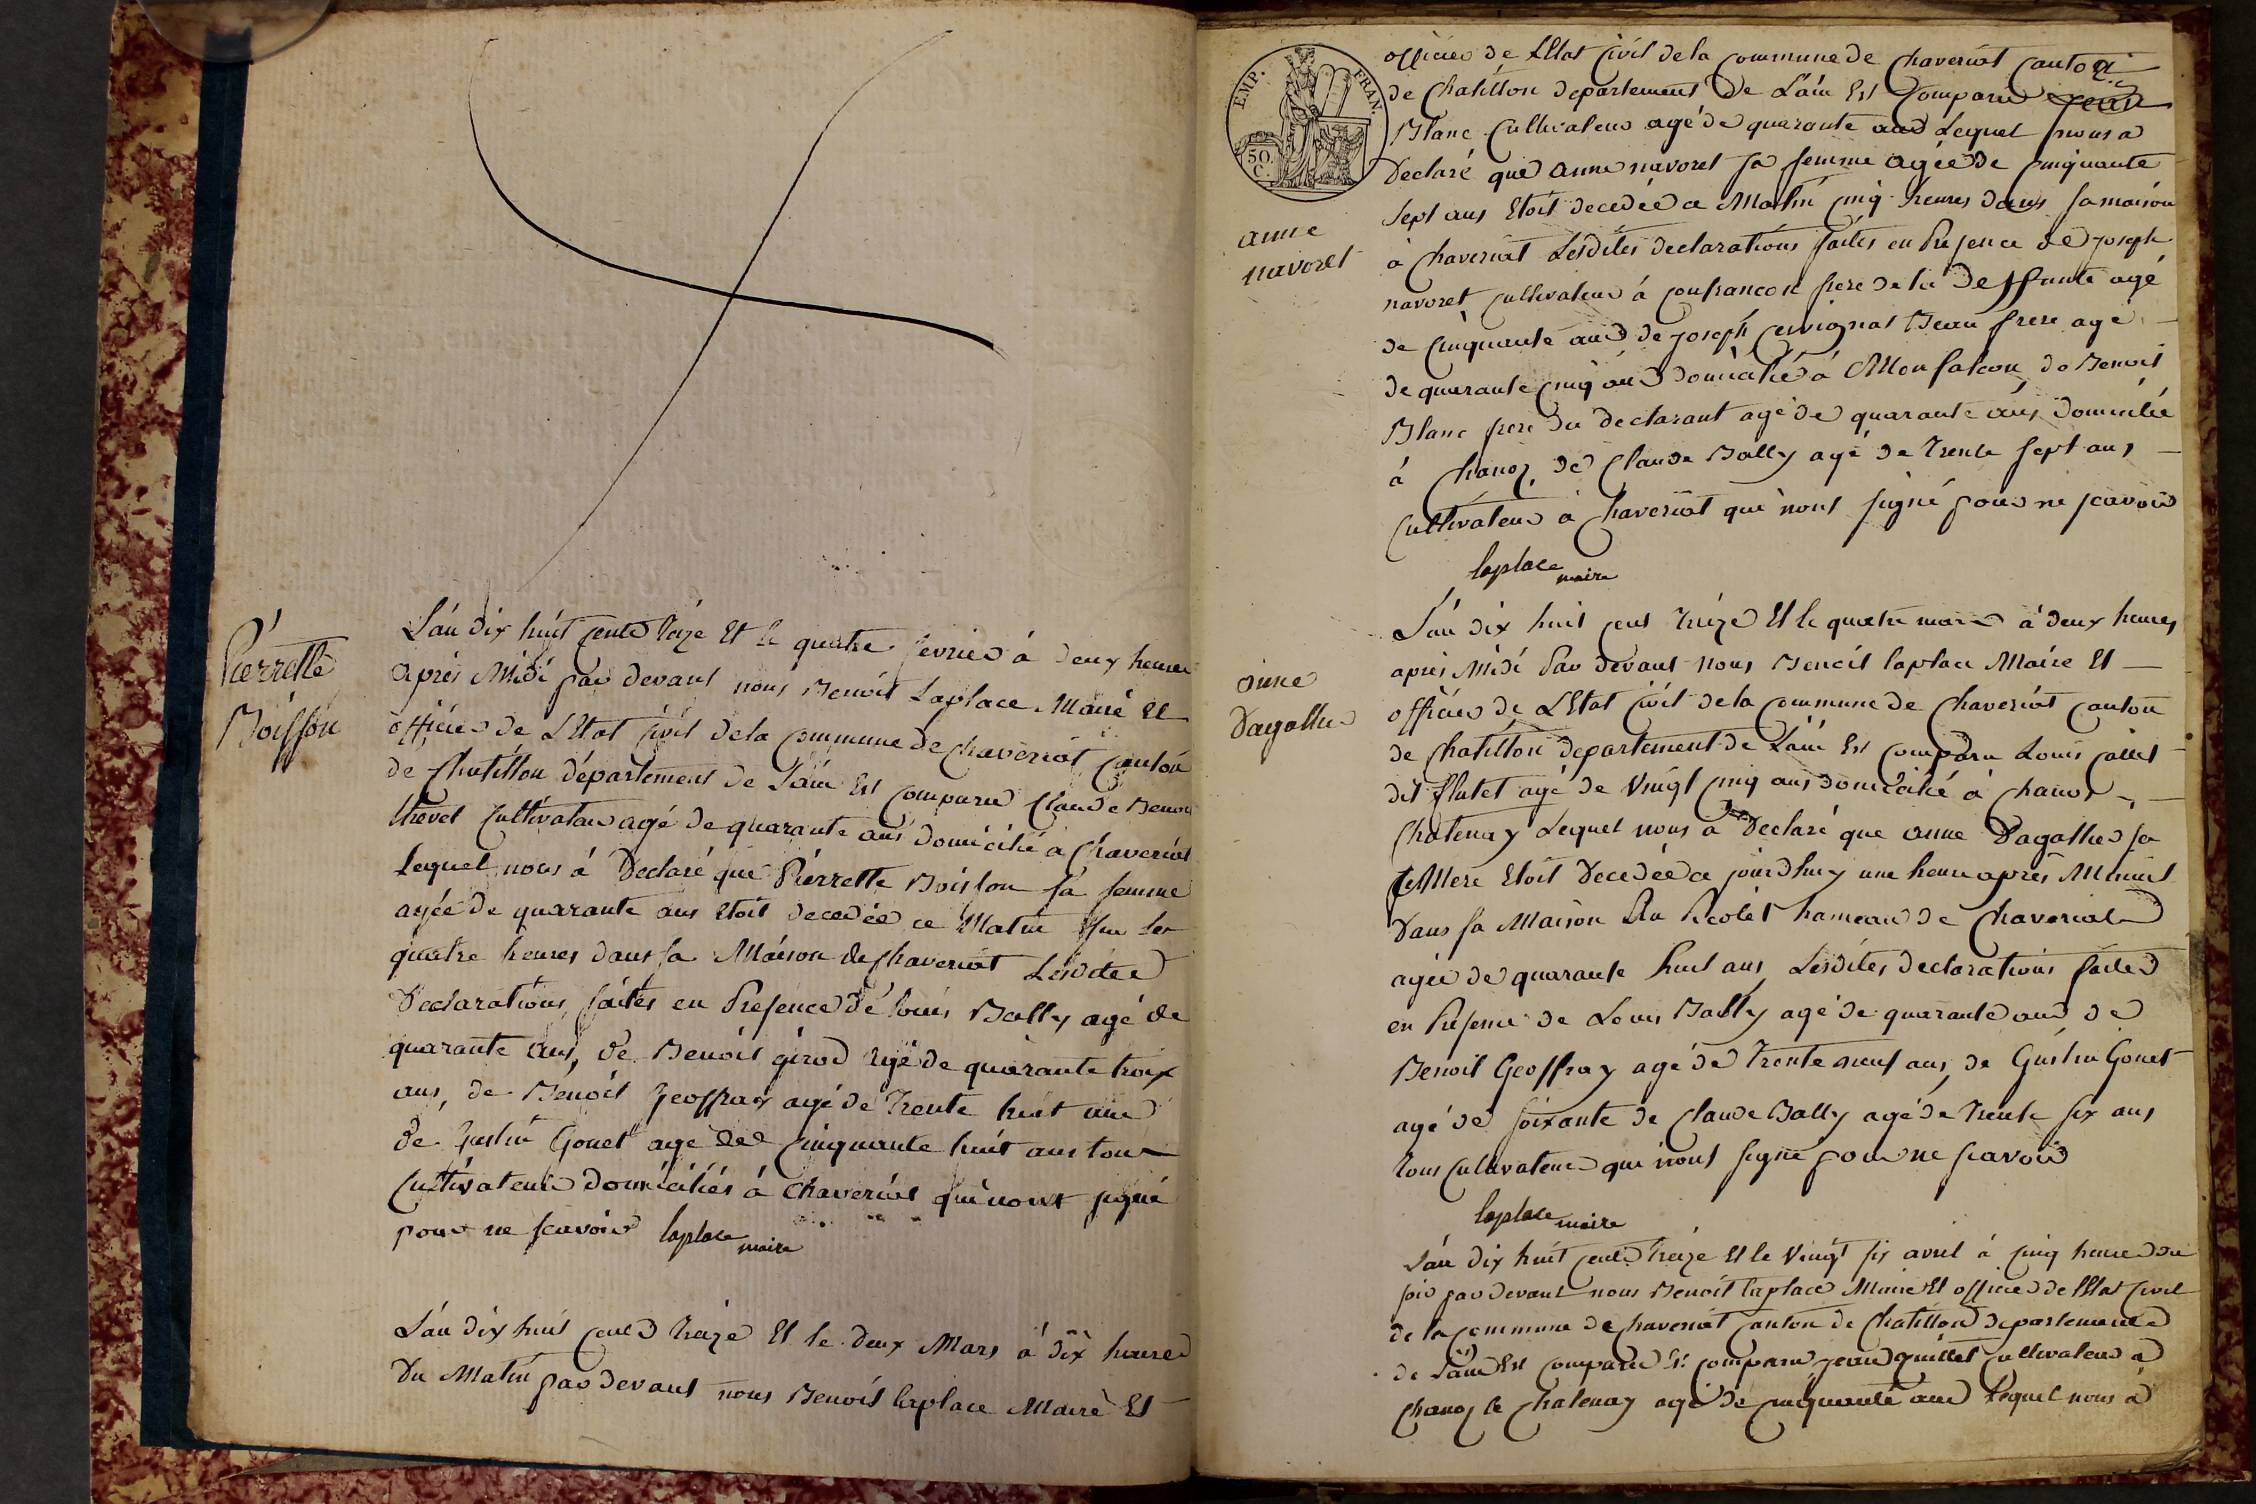 Pierrette
Boisson
L'an dix huit cents treize et le quatre fevrier à deux heures
après Midi par devant nous Benoit Laplace Maire et
officier de L'Etat Civil de la Commune de Chaveriat Canton
de Chatillon département de L'ain Est comparu Claude Benoit
thevet Cultivateur agé de quarante ans domicilié a Chaveriat
Lequel nous à Declaré que Pierrette Boisson sa femme
agée de quarante ans Etoit decedée ce Matin sur les
quatre heures dans sa Maison de Chaveriat Lesdites
Declarations, faites en Presence de Louis Bally agé de
quarante ans, de Benoit girod agé de quarante troix
ans, de Benoit Geoffray agé de Trente huit ans
de Justin Gonet agé de Cinquante huit ans tous
Cultivateurs domiciliés à Chaveriat qui nont signé
pour ne scavoir laplace maire
L'an dix huit cents treize Et le deux Mars à dix heures
Du Matin par devant nous Benoit laplace Maire Et
EMP. FRAN.
50.
C.
officier de L'Etat Civil de la Commune de Chaveriat Canton
de Chatillon departement de L'ain Est Comparu
Blanc Cultivateur agé de quarante ans Lequel nous a
Declaré que anne navoret sa femme agée de cinquante
sept ans Etoit decedée ce Matin cinq heures dans sa maison
à Chaveriat Lesdites declarations faites en Presence de joseph
anne
navoret
navoret cultivateur à confrancon frere de la deffunte agé
de Cinquante ans de joseph Beau frere agé
de quarante cinq ans domicilié à Monfalcon, de Benoit
Blanc frere du declarant agé de quarante ans, domicilié
à Chanoz, de Claude Bally agé de Trente sept ans,
Cultivateur à Chaveriat qui nont signé pour ne scavoir
laplace maire
L'an dix huit cens treize Et le quatre mars à deux heures
après Midi Par devant nous Benoit laplace Maire Et
anne
Dagallier
officier de L'Etat Civil de la Commune de Chaveriat canton
de Chatillon departement de L'ain Est comparu Louis
dit flutet agé de Vingt cinq ans domicilié à Chanoz
Chatenay Lequel nous a Declaré que anne Dagallier sa
Mere Etoit Decedée ce jourdhuy une heure après Minuit
Dans sa Maison hameau de Chaveriat
agée de quarante huit ans, Lesdites declarations faites
en Presence de Louis Bally agé de quarante ans de
Benoit Geoffray agé de Trente neuf ans, de Justin Gonet
agé de soixante de Claude Bally agé de Trente six ans
tous Cultivateurs qui nont signé pour ne scavoir
laplace maire
L'an dix huit cents treize Et le Vingt six avril à cinq heures du
soir par devant nous Benoit laplace Maire Et officier de l'Etat Civil
de la Commune de Chaveriat canton de Chatillon departement
de L'ain Est comparu Est comparu jean guillet cultivateur à
Chanoz le Chatenay agé de cinquante ans Lequel nous à